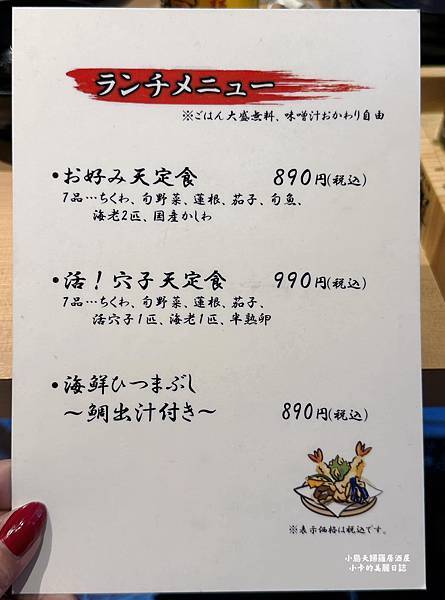 ランチメニュー
※ごはん大盛無料、味噌汁おかわり自由
・お好み天定食 890円(税込)
7品…ちくわ、旬野菜、蓮根、茄子、旬魚、
海老2匹、国産かしわ
・活！穴子天定食 990円(税込)
7品…ちくわ、旬野菜、蓮根、茄子、
活穴子1匹、海老1匹、半熟卵
・海鮮ひつまぶし
〜鯛出汁付き〜 890円(税込)
※表示価格は税込です。
小島夫婦羅居酒屋
小卡的美麗日誌